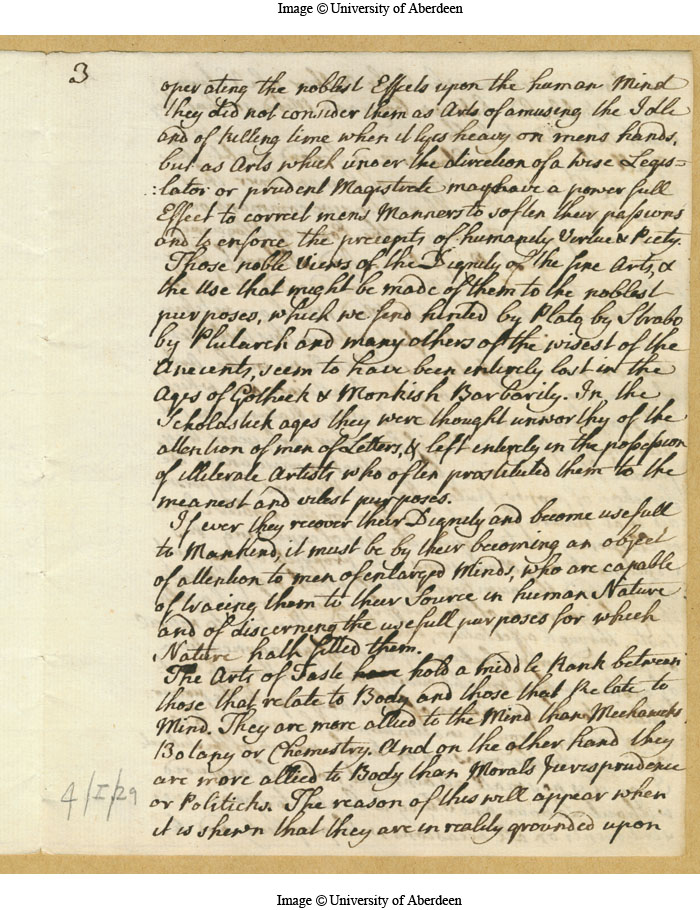 Image © University of Aberdeen
3
operating the noblest Effects upon the human Mind
they did not consider them as Arts of amusing the Idle
and of killing time when it lyes heavy on mens hands,
but as Arts which under the direction of a wise Legis=
:lator or prudent Magistrate may have a power full
Effect to correct mens Manners to soften their passions
and to enforce the precepts of humanity Virtue & Piety.
Those noble Views of the Dignity of the fine Arts, &
the Use that might be made of them to the noblest
purposes, which we find hinted by Plato by Strabo
by Plutarch and many others of the wisest of the
Anecents, seem to have been entirely lost in the
Ages of Gotheck & Monkish Barbarity. In the
Scholdstick ages they were thought unworthy of the
attention of men of Letters, & left entirely in the possession
of illiterate Artists who often prostituted them to the
meanest and vilest purposes.
If ever they recover their Dignity and become usefull
to Mankind, it must be by their becoming an object
of attention to men of enlarged Minds, who are capable
of tracing them to their Source in human Nature
and of discerning the usefull purposes for which
Nature hath fitted them.
The Arts of Taste have hold a middle Rank between
those that relate to Body and those that Relate to
Mind. They are more allied to the Mind than Mechanicks
Botany or Chemestry. And on the other hand they
are more allied to Body than Morals Jurisprudence
or Politicks. The reason of this will appear when
it is shewn that they are in reality grounded upon
4/I/29
Image © University of Aberdeen